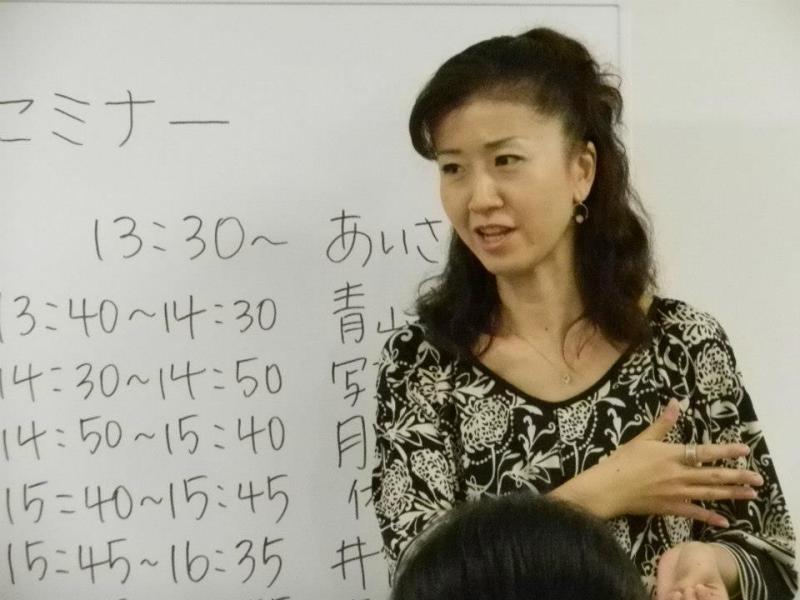 セミナー
13:30～ あいさ
13:40～14:30 青山
14:30～14:50 写
14:50～15:40 月
15:40～15:45 休
15:45～16:35 井